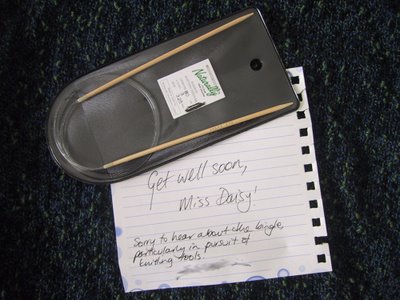 Naturally
Get well soon,
Miss Daisy!
Sorry to hear about the lurgle,
particularly in pursuit of
knitting tools.